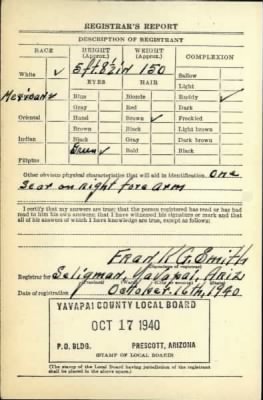 REGISTRAR'S REPORT
DESCRIPTION OF REGISTRANT
RACE HEIGHT (Approx.) WEIGHT (Approx.) COMPLEXION
White ✓ 5 ft. 8½ in 150 Sallow
EYES HAIR Light
Mexican ✓ Blue Blonde Ruddy ✓
Gray Red Dark
Oriental Hazel Brown ✓ Freckled
Brown Black Light brown
Indian Black Gray Dark brown
Green ✓ Bald Black
Filipino
Other obvious physical characteristics that will aid in identification. One
Scar on Right Fore Arm
I certify that my answers are true; that the person registered has read or has had
read to him his own answers; that I have witnessed his signature or mark and that
all of his answers of which I have knowledge are true, except as follows:
Frank G. Smith
(Signature of registrar)
Registrar for Seligman, Yavapai, Ariz
Date of registration October 16th, 1940
YAVAPAI COUNTY LOCAL BOARD
OCT 17 1940
P.O. BLDG. PRESCOTT, ARIZONA
(STAMP OF LOCAL BOARD)
(The stamp of the Local Board having jurisdiction of the registrant
shall be placed in the above space.)